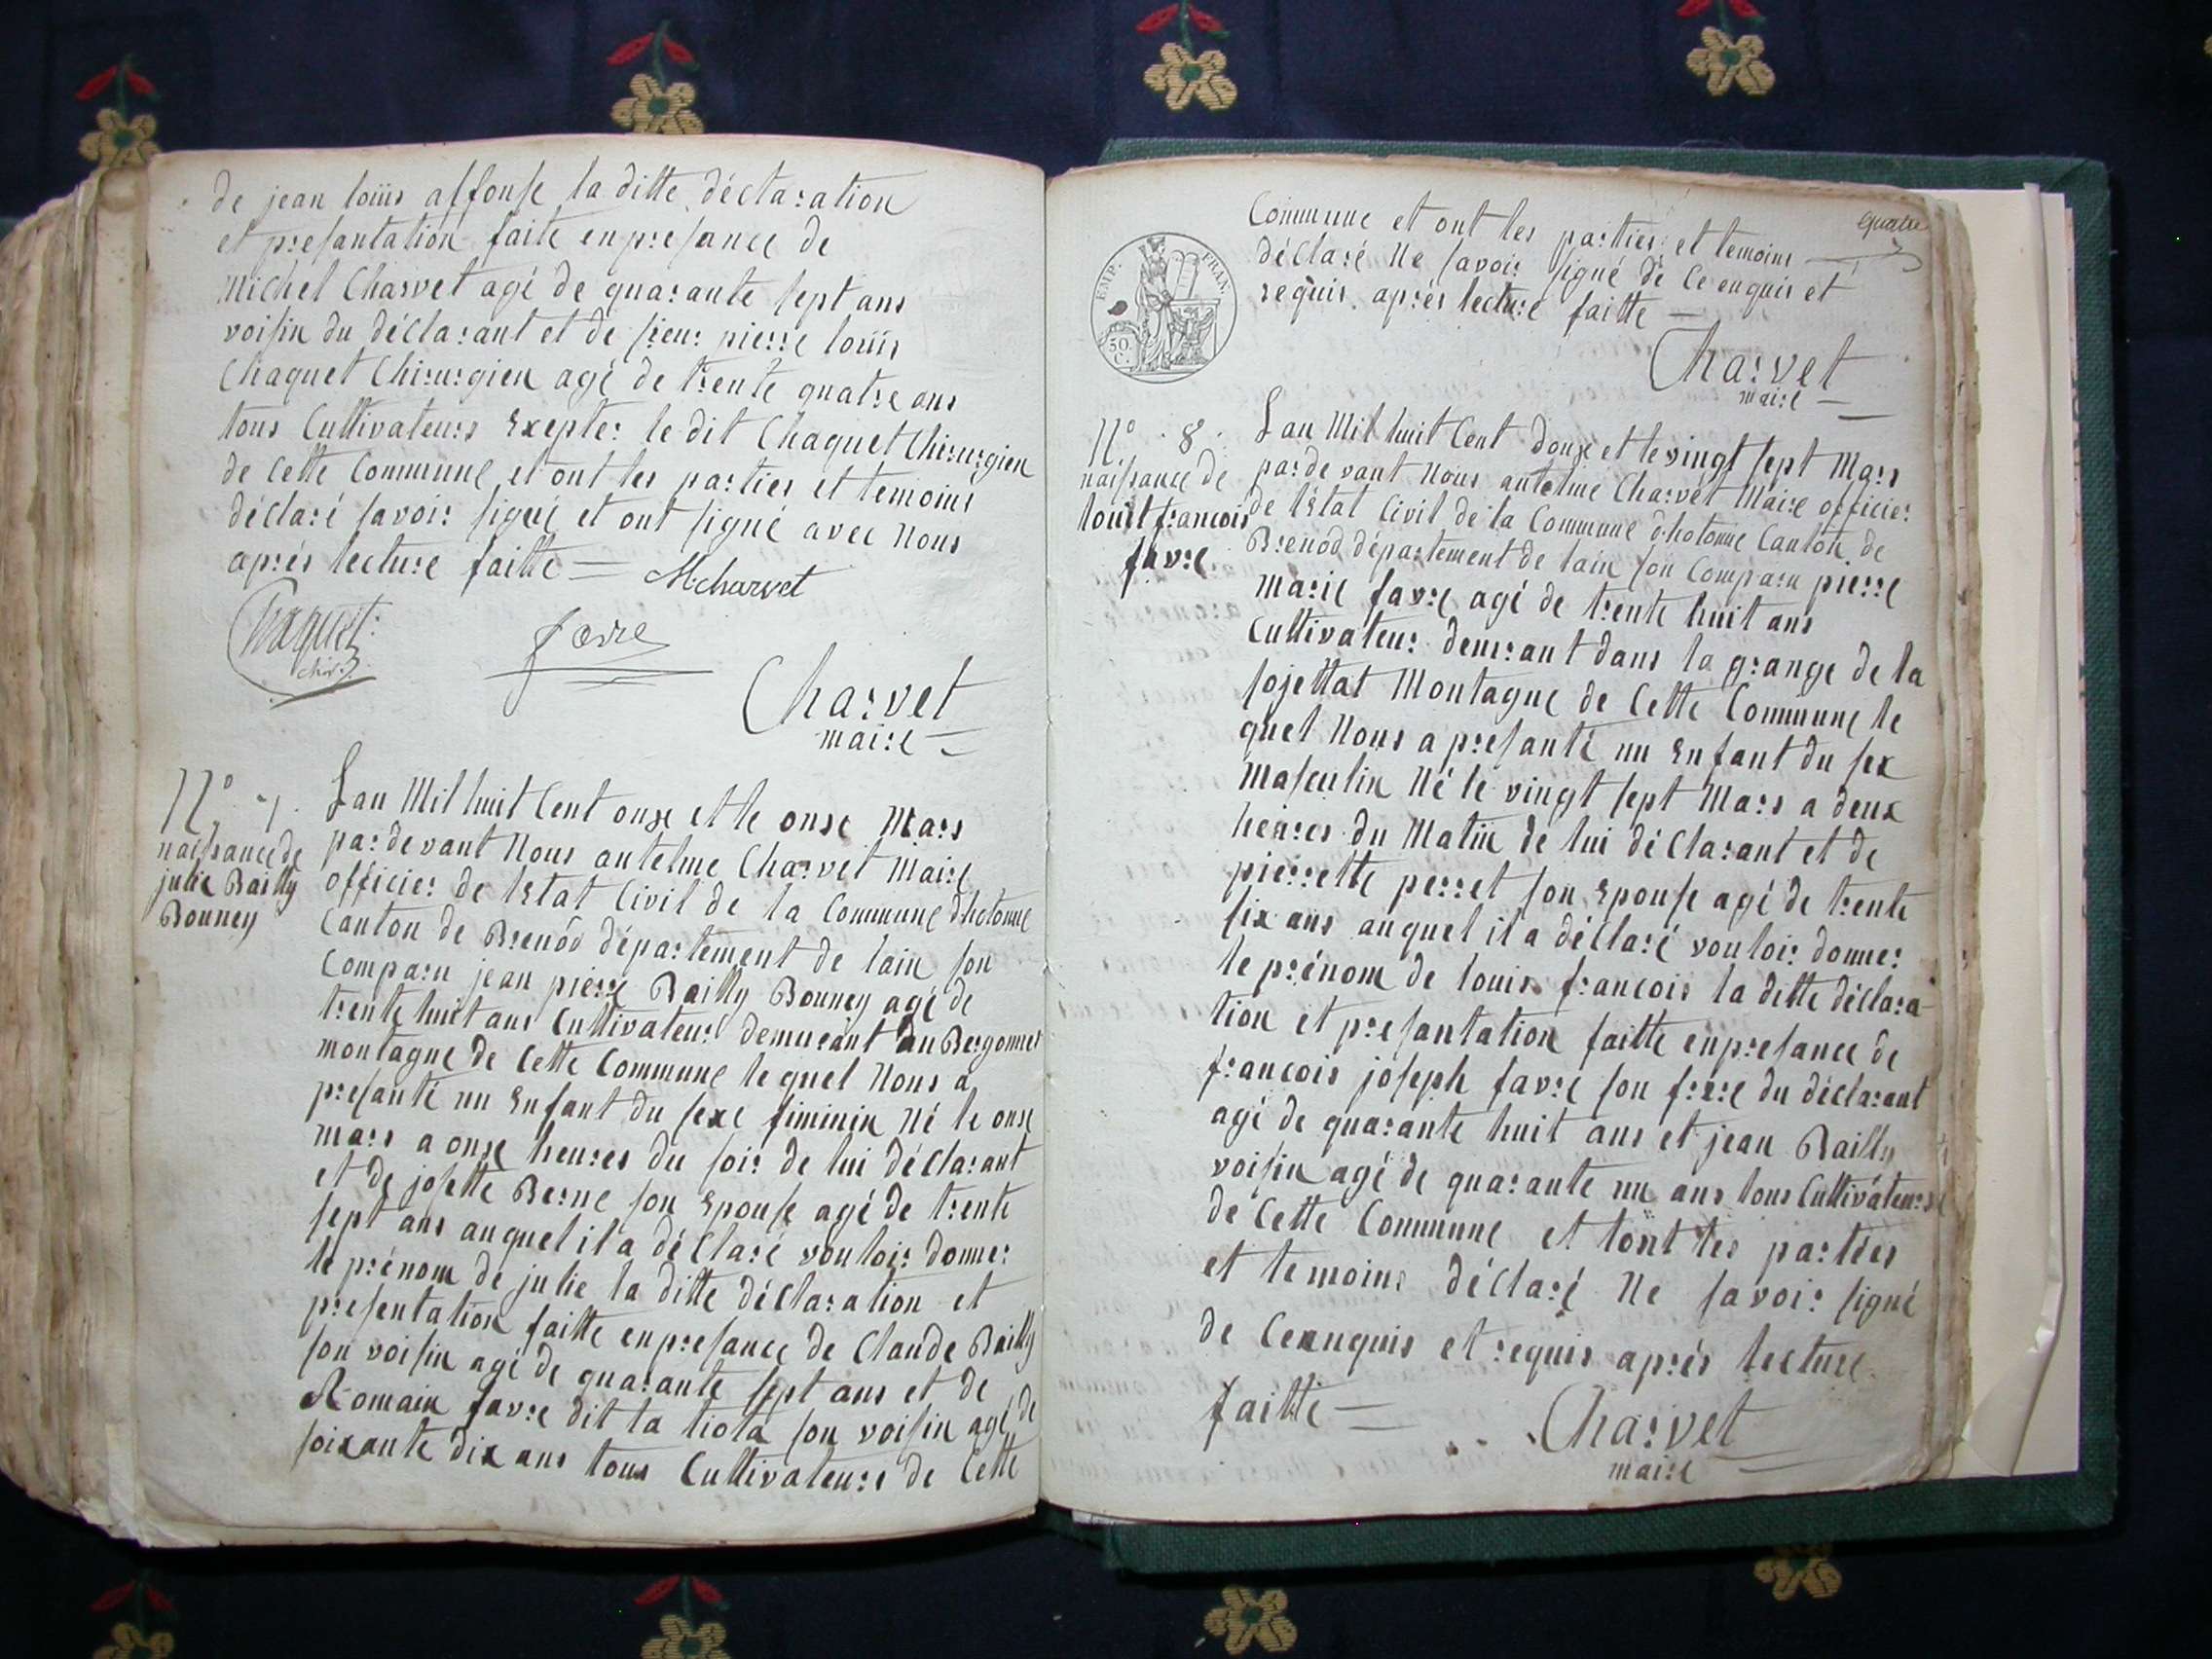 de jean louis alfonse la ditte déclaration
et présantation faite en présance de
Michel Charvet agé de quarante sept ans
voisin du déclarant et de sieur pierre louis
Chaquet Chirurgien agé de trente quatre ans
tous Cultivateurs Exepter le dit Chaquet Chirurgien
de Cette Commune et ont les parties et temoins
déclaré savoir signé et ont signé avec Nous
aprés lecture faitte = M charvet
Chaquet favre
chir.
Charvet
maire
N° 7.
naissance de
julie Bailly
Bonney
Lan Mil huit Cent onze et le onze Mars
pardevant Nous antelme Charvet Maire
officier de lEtat Civil de la Commune dhotonne
Canton de Brenôd département de lain son
Comparu jean pierre Bailly Bonney agé de
trente huit ans Cultivateur demurant au Bergonnet
montagne de Cette Commune le quel Nous a
présanté un Enfant du sexe fiminin Né le onze
mars a onze heures du soir de lui déclarant
et de josette Berne son Epouse agé de trente
sept ans auquel il a déclaré vouloir donner
le prénom de julie la ditte déclaration et
présentation faitte en présance de Claude Bailly
son voisin agé de quarante sept ans et de
Romain favre dit la tiota son voisin agé de
soixante dix ans tous Cultivateurs de Cette
quatre
Commune et ont les parties et temoins
déclaré Ne savoir signé de Ce enquis et
requis aprés lecture faitte =
EMP. FRAN.
50.
C.
Charvet
maire
N° 8.
naissance de
louis francois
favre
Lan Mil huit Cent douze et le vingt sept Mars
pardevant Nous antelme Charvet Maire officier
de lEtat Civil de la Commune dhotonne Canton de
Brenôd département de lain son Comparu pierre
marie favre agé de trente huit ans
Cultivateur demrant dans la grange de la
sojettat Montagne de Cette Commune le
quel Nous a présanté un Enfant du sex
Masculin Né le vingt sept Mars a deux
heures du Matin de lui déclarant et de
pierrette perret son Epouse agé de trente
six ans auquel il a déclaré vouloir donner
le prénom de louis francois la ditte déclara-
tion et présantation faitte en présance de
francois joseph favre son frere du déclarant
agé de quarante huit ans et jean Bailly
voisin agé de quarante un ans tous Cultivateurs
de Cette Commune et tont les parties
et temoins déclaré Ne savoir signé
de Ceanquis et requis aprés lecture
faitte = Charvet
maire